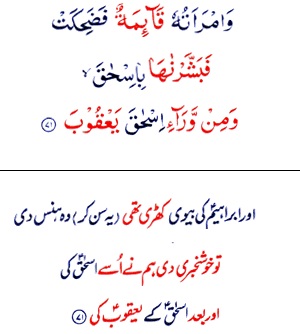 وَامْرَاَتُهٗ قَآئِمَةٌ فَضَحِكَتْ
فَبَشَّرْنٰهَا بِاِسْحٰقَ ۙ
وَمِنْ وَّرَآءِ اِسْحٰقَ يَعْقُوْبَ ﴿۷۱﴾
اور ابراہیمؑ کی بیوی کھڑی تھی (یہ سن کر) وہ ہنس دی
تو خوشخبری دی ہم نے اُسے اسحٰقؑ کی
اور بعد اسحٰقؑ کے یعقوبؑ کی ﴿۷۱﴾